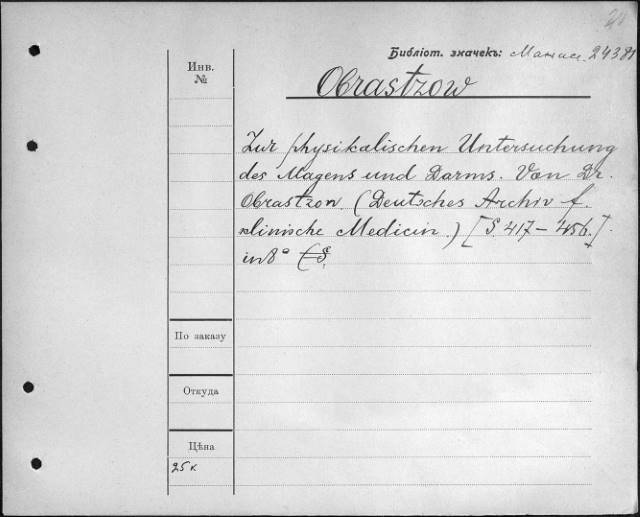 Библіот. значекъ: 24381
Инв.
№
Obrastzow
Zur physikalischen Untersuchung
des Magens und Darms. Von Dr.
Obrastzow (Deutsches Archiv f.
klinische Medicin.) [S. 417–456.].
in 8° (S.
По заказу
Откуда
Цѣна
25 к